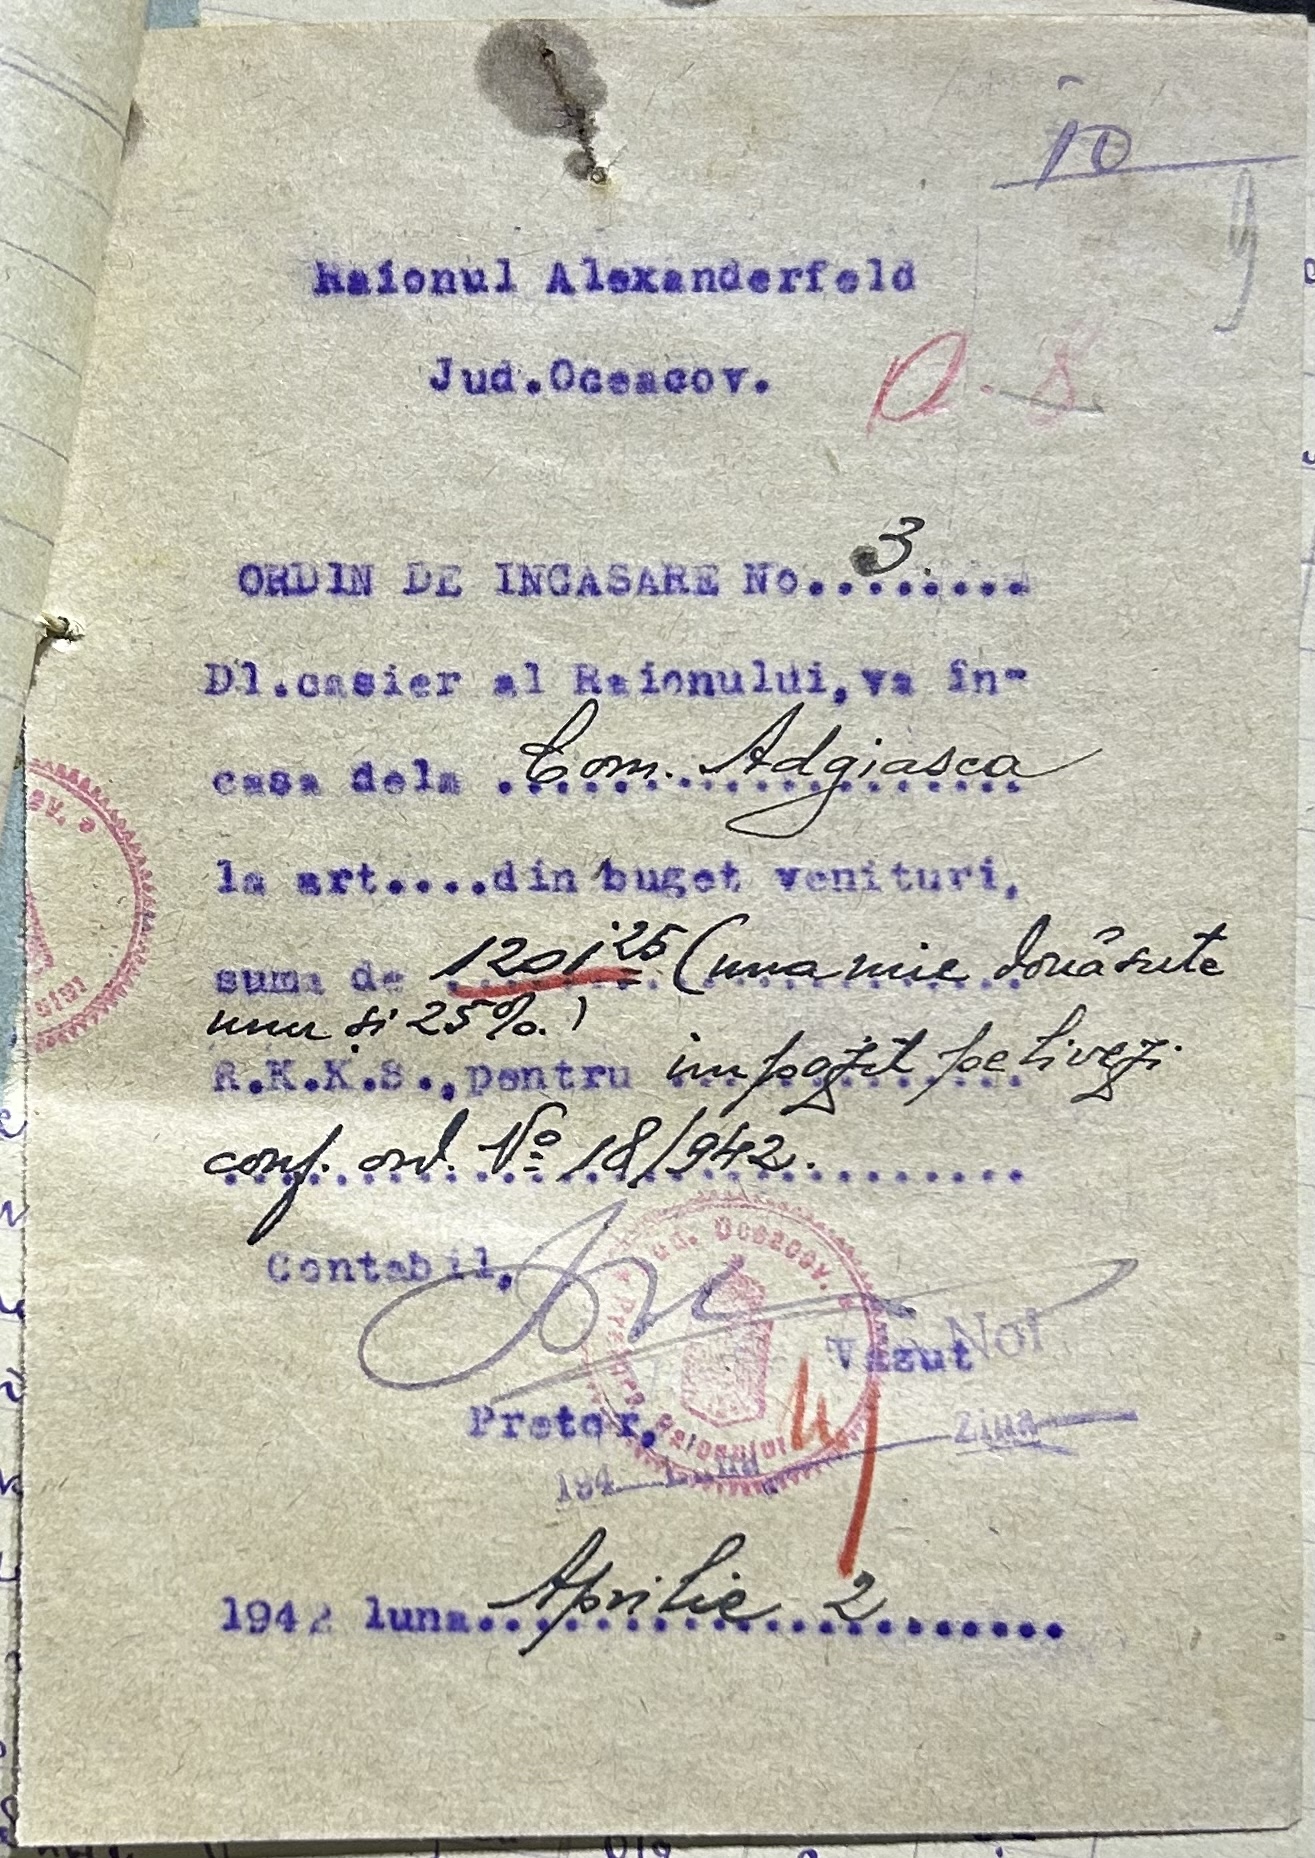 10
9
Raionul Alexanderfeld
Jud.Oceacov.
ORDIN DE INCASARE No. 3.
Dl.casier al Raionului,va în-
casa dela Com. Adgiasca
la art....din buget venituri,
suma de 1201,25 (una mie douăsute
unu și 25%.)
R.K.K.S.,pentru impozit pe livezi
conf. ord. No 18/942.
Contabil,
Jud. Oceacov.
Pretura Raionului
Vazut
Noi
Pretor,
Ziua
194 Luna
1942 luna Aprilie 2